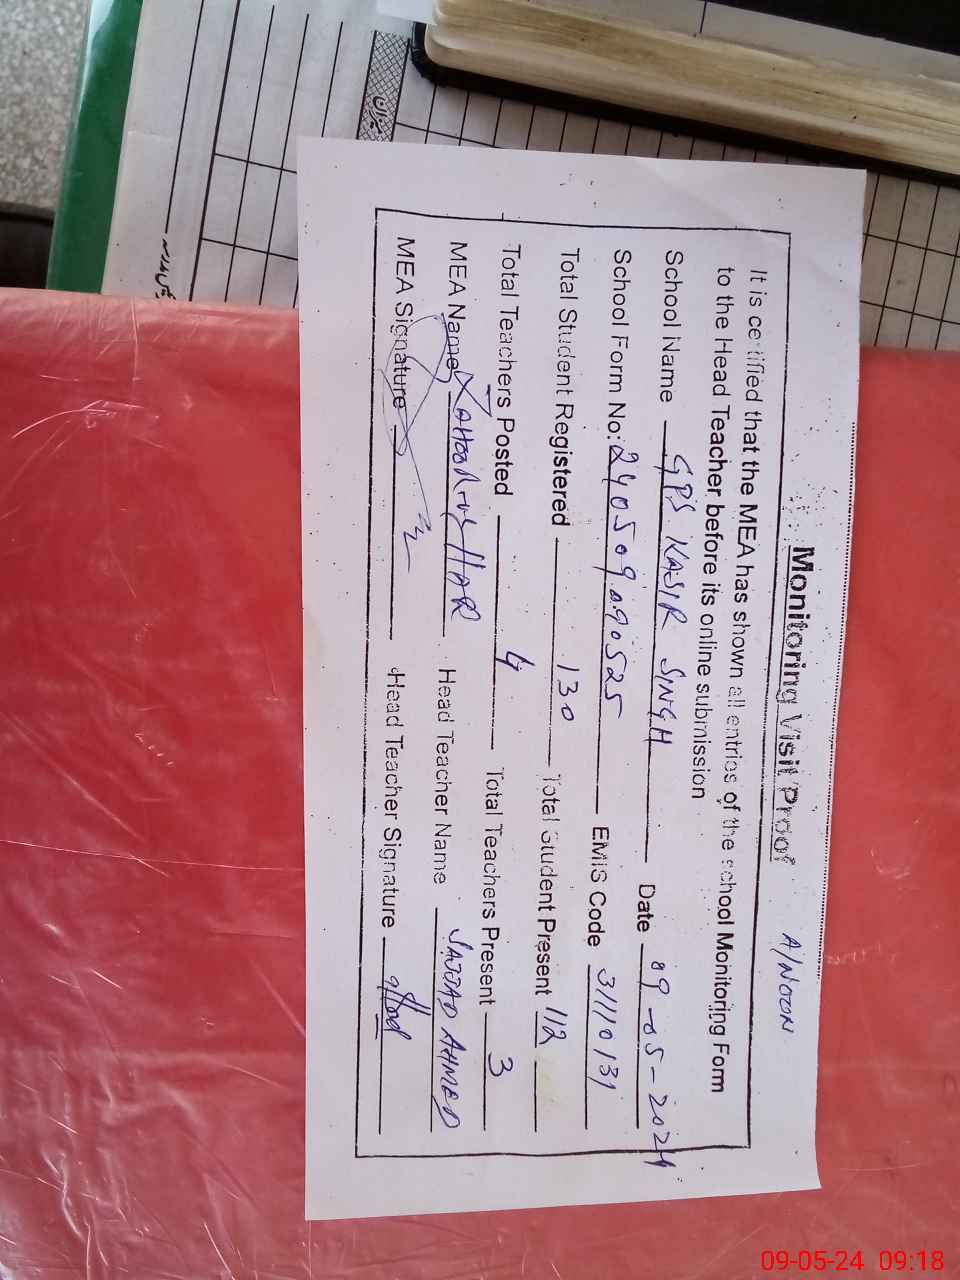 Monitoring Visit Proof
A/NOON
It is certified that the MEA has shown all entries of the school Monitoring Form
to the Head Teacher before its online submission
School Name GPS KASIR SINGH Date 09-05-2024
School Form No: 240509090525 EMIS Code 31110131
Total Student Registered 130 Total Student Present 112
Total Teachers Posted 4 Total Teachers Present 3
MEA Name ZAHOOR-UL-HAR Head Teacher Name SAJJAD AHMED
MEA Signature Head Teacher Signature
09-05-24 09:18